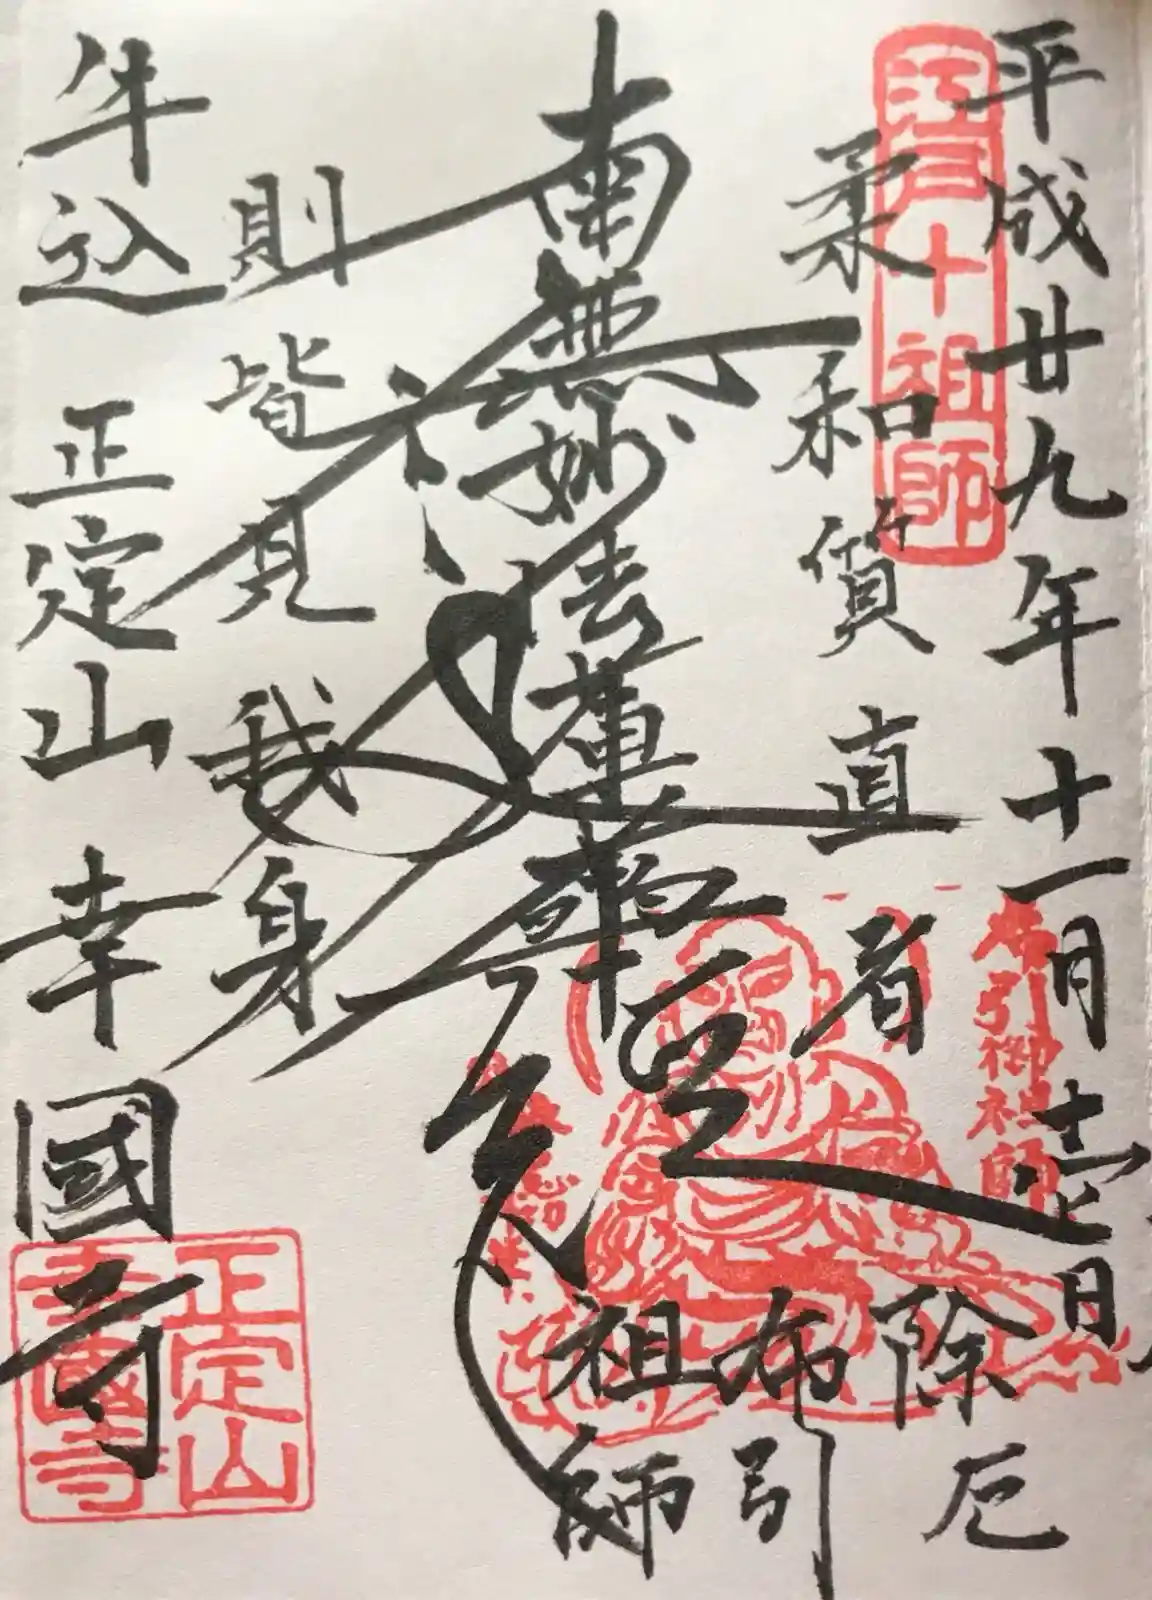 平成廿九年十一月壱日
江戸十祖師
柔和質直者
布引御祖師
除厄
布引
祖師
南無妙法蓮華経
則皆見我身
牛込 正定山 幸國寺
正定山
幸國寺